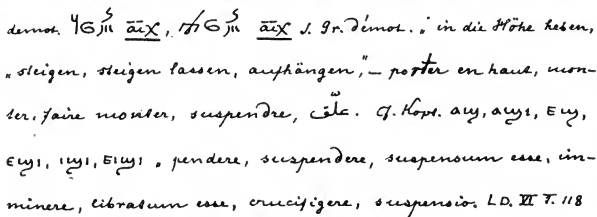 demot. āiχ, āiχ s. Gr. démot. „in die Höhe heben,
„steigen, steigen lassen, aufhängen,"– porter en haut, mon-
ter, faire monter, suspendre, علق. Cf. Kopt. ⲁϣ, ⲁϣⲓ, ⲉϣ,
ⲉϣⲓ, ⲓϣⲓ, ⲉⲓϣⲓ „ pendere, suspendere, suspensum esse, im-
minere, libratum esse, crucifigere, suspensio. LD. VI T. 118